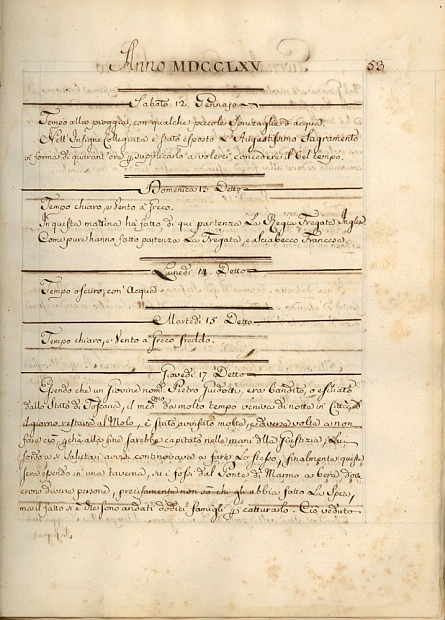 Anno MDCCLXV
53
Sabato 12. Gennajo
Tempo alla pioggia, con qualche piccola spruzzaglia d'acqua.
Nell'Insigne Collegiata è stato esposto L'Augustissimo Sagramento
in forma di quarant'ore p supplicarlo a volerci concedere il bel tempo.
Domenica 13 Detto
Tempo chiaro, e Vento a Greco.
In questa mattina ha fatto di qui partenza La Regia Fregata Inglese
Come pure hanno fatto partenza La Fregata, e Sciabecco Francese.
Lunedì 14. Detto
Tempo oscuro, con Acqua
Martedì 15 Detto
Tempo chiaro, e Vento a Greco freddo.
Giovedì 17 Detto
Essendo che un Giovine nom. Pietro Guidotti, era bandito, o esiliato
dallo Stato di Toscana, il med.mo da molto tempo veniva di notte in Città, e
il giorno restava al Molo, è stato avvisato molte, e diverse volte a non
fare ciò, che alla fine sarebbe capitato nelle mani dlla Giustizia, Lui
sordo a i Salutari avvisi continovava a fare Lo stesso, finalmente questa
sera essendo in una taverna, su i fossi dal Ponte di Marmo a bere dove
erono diverse persone, precisamente non so chi gli abbia fatto La Spia,
ma il fatto si è che sono andati dodici famigli p catturarlo. Ciò veduto